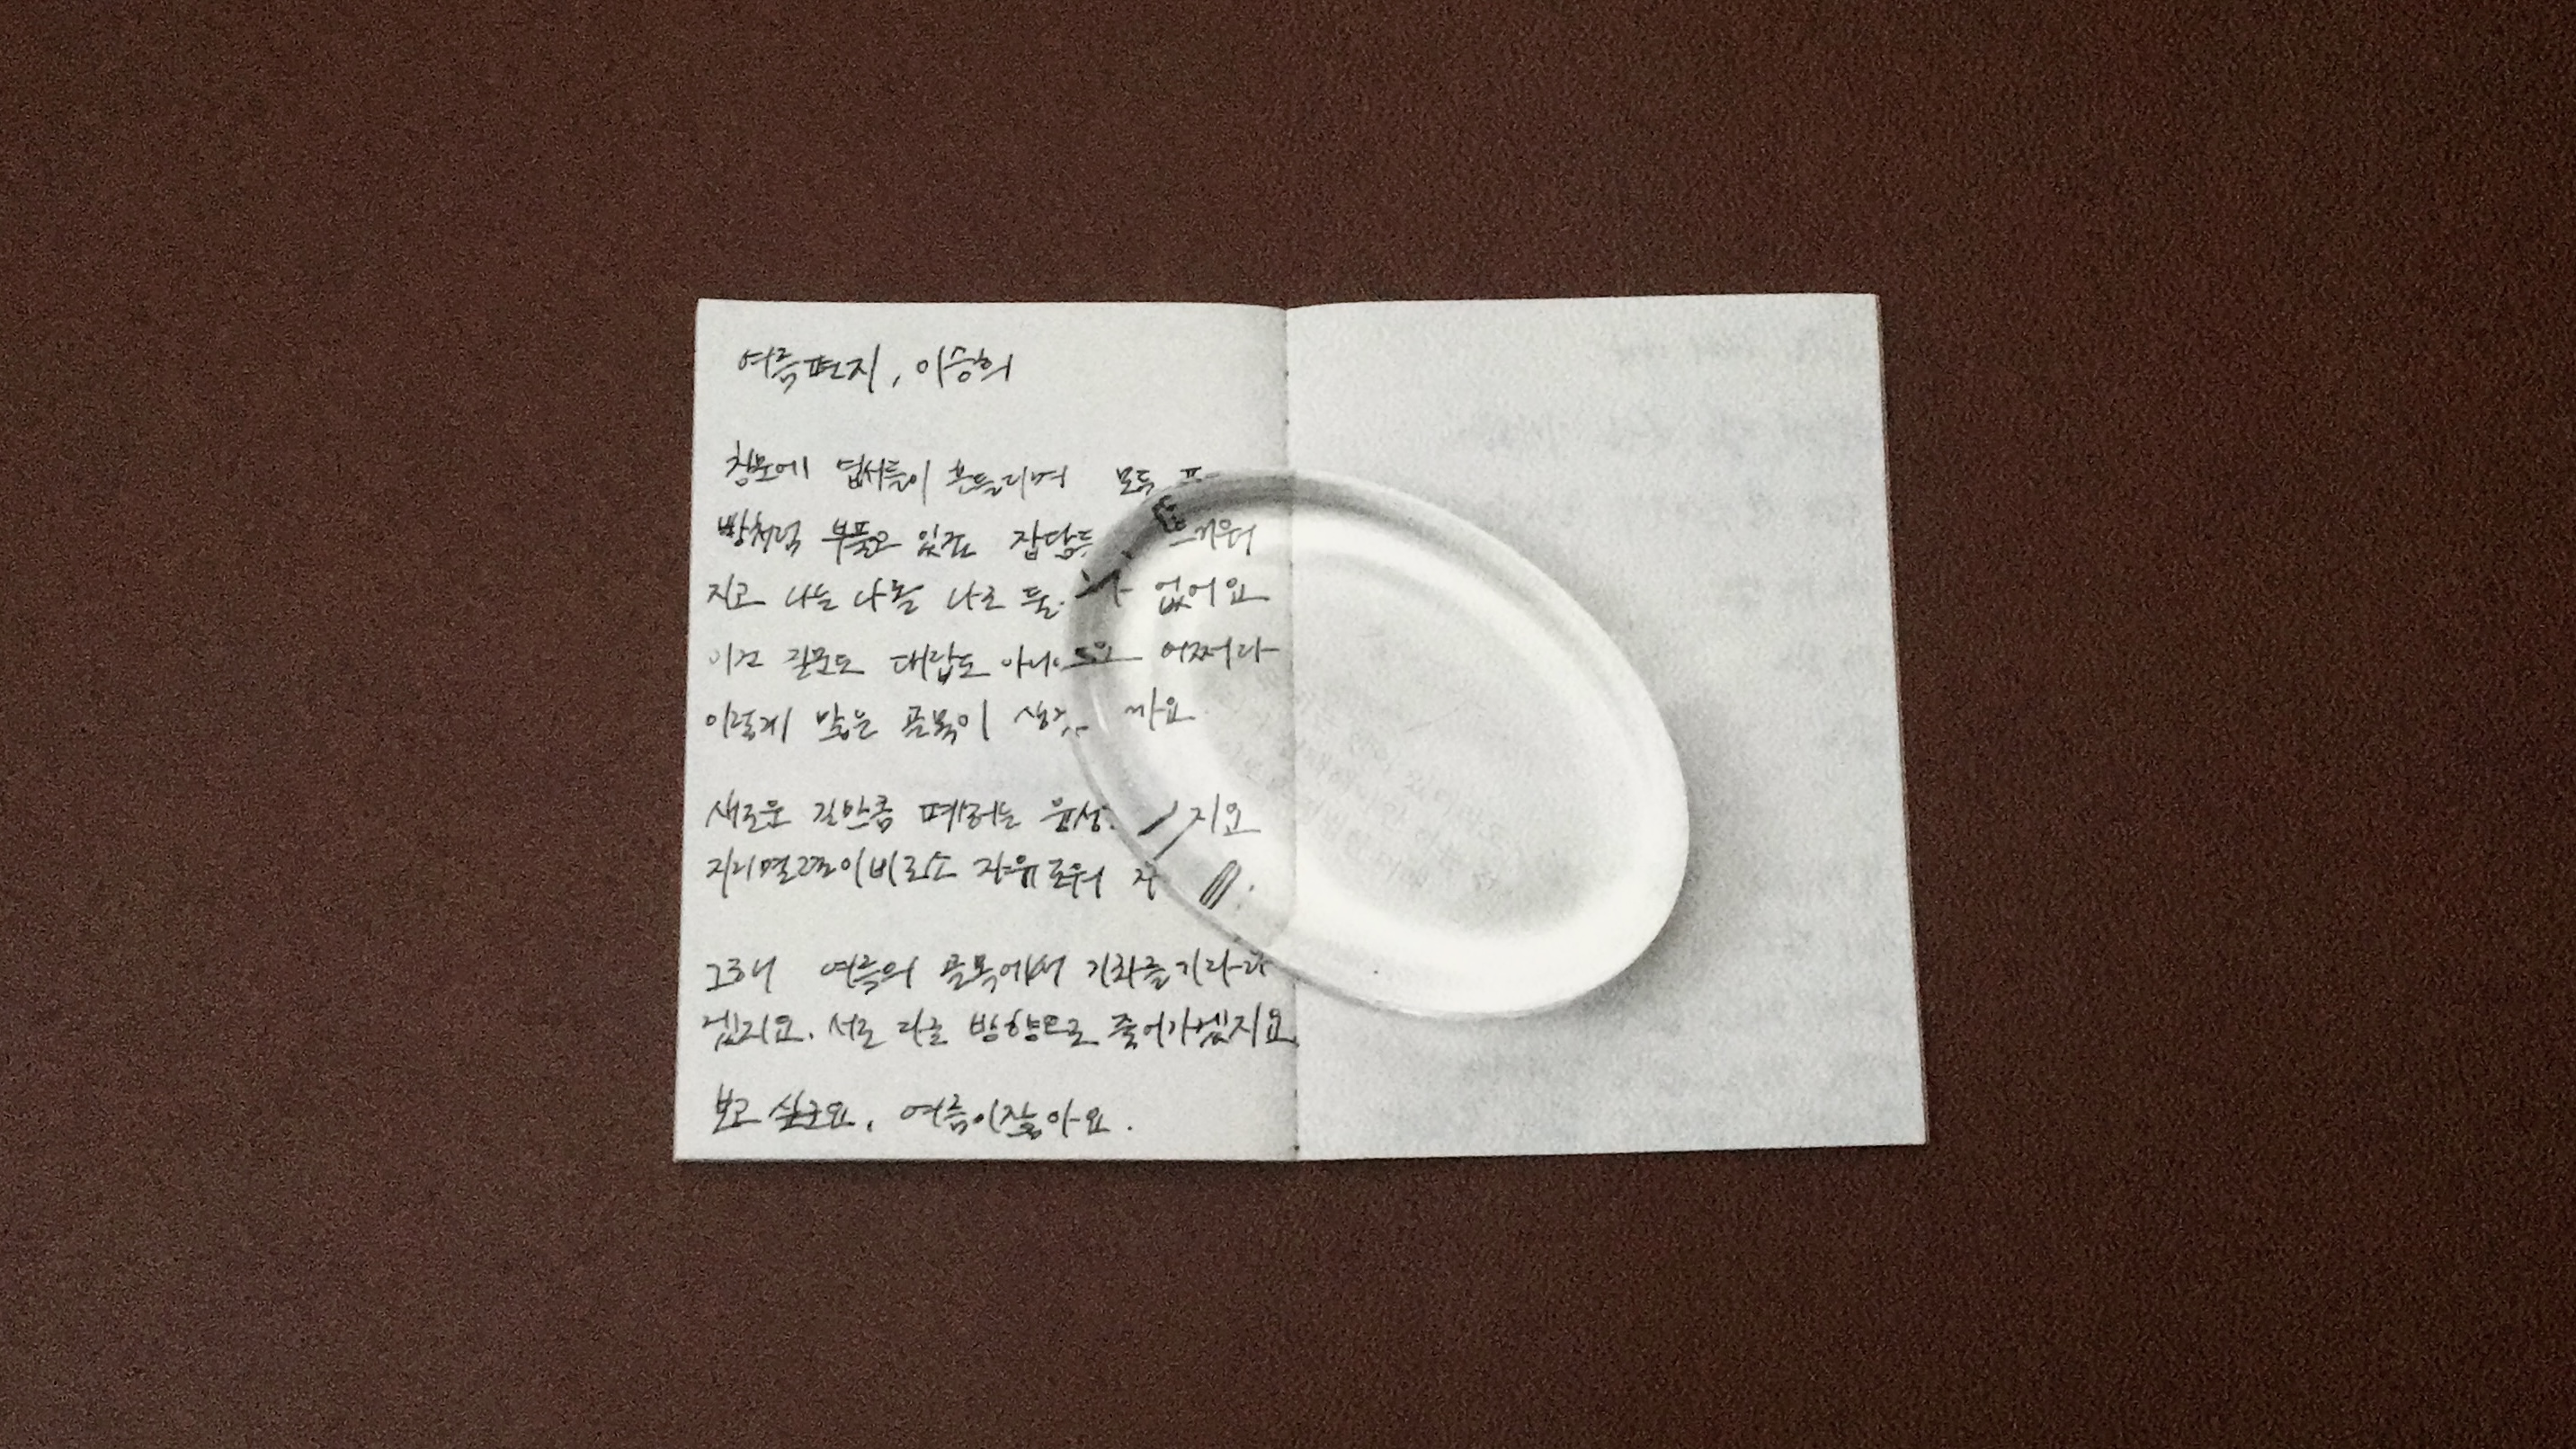 여름편지, 이승희
창문에 엽서들이 흔들리며 모두
빵처럼 부풀고 있죠 잡담
뜨거워
지고 나는 나를 나로 둘 없어요
이건 질문도 대답도 아니 어쩌다
이렇게 많은 골목이
새로운 길만큼 지요
지리멸렬이 비로소 자유로워
그러니 여름의 골목에서 기차를 기다리
겠지요. 서로 다른 방향으로 죽어가겠지요
보고 싶군요. 여름이잖아요.